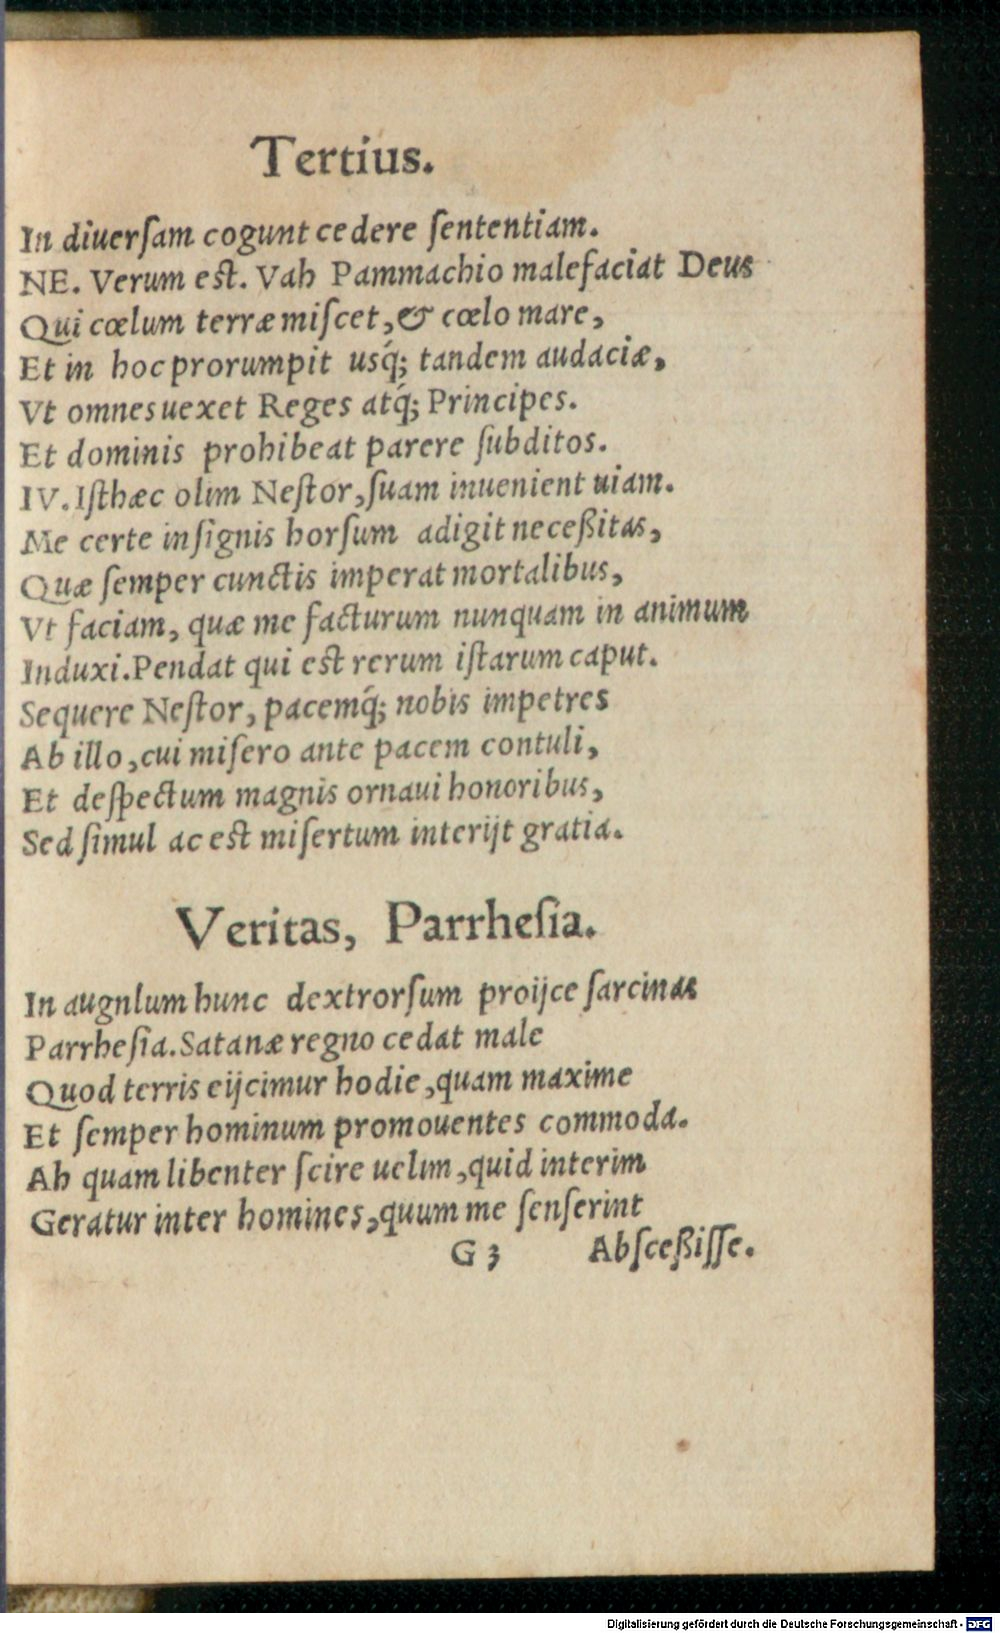 Tertius.
In diuerſam cogunt cedere ſententiam.
NE. Verum eſt. Vah Pammachio malefaciat Deus
Qui cœlum terræ miſcet, & cœlo mare,
Et in hoc prorumpit usq́; tandem audaciæ,
Vt omnes uexet Reges atq́; Principes.
Et dominis prohibeat parere ſubditos.
IV. Iſthæc olim Neſtor, ſuam inuenient uiam.
Me certe inſignis horſum adigit neceßitas,
Quæ ſemper cunctis imperat mortalibus,
Vt faciam, quæ me facturum nunquam in animum
Induxi. Pendat qui eſt rerum iſtarum caput.
Sequere Neſtor, pacemq́; nobis impetres
Ab illo, cui miſero ante pacem contuli,
Et deſpectum magnis ornaui honoribus,
Sed ſimul ac eſt miſertum interijt gratia.
Veritas, Parrheſia.
In augnlum hunc dextrorſum proijce ſarcinas
Parrheſia. Satanæ regno cedat male
Quod terris eijcimur hodie, quam maxime
Et ſemper hominum promouentes commoda.
Ah quam libenter ſcire uelim, quid interim
Geratur inter homines, quum me ſenſerint
G 3 Abſceßiſſe.
Digitalisierung gefördert durch die Deutsche Forschungsgemeinschaft - DFG